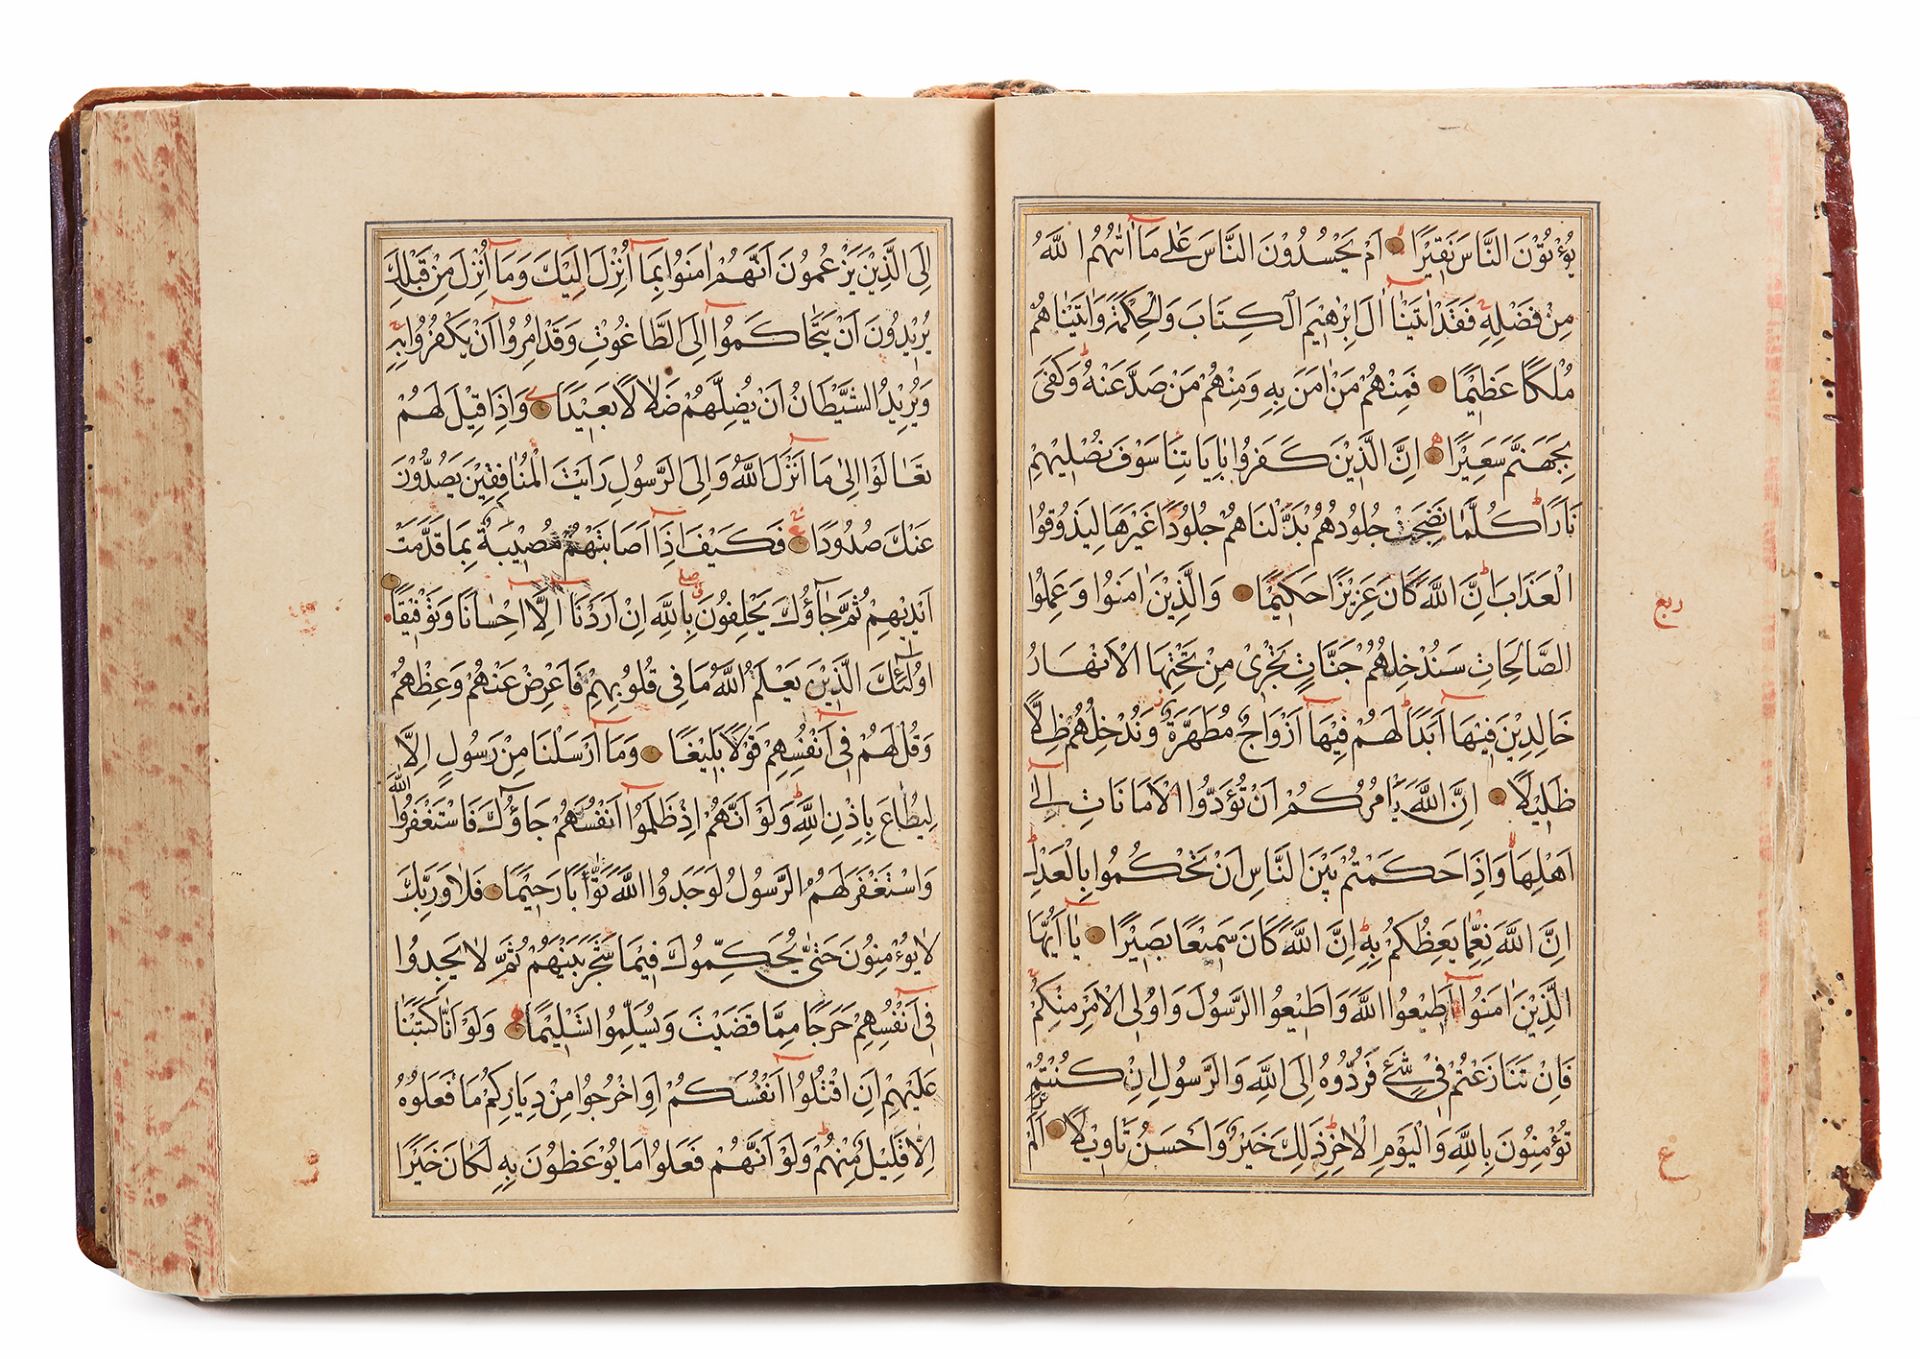 يُؤْتُوْنَ النَّاسَ نَقِيْرًا اَمْ يَحْسُدُوْنَ النَّاسَ عَلٰى مَا اٰتٰيهُمُ اللّٰهُ
مِنْ فَضْلِهٖ فَقَدْ اٰتَيْنَا اٰلَ اِبْرٰهٖيمَ الْكِتَابَ وَالْحِكْمَةَ وَاٰتَيْنَاهُمْ
مُلْكًا عَظٖيمًا فَمِنْهُمْ مَنْ اٰمَنَ بِهٖ وَمِنْهُمْ مَنْ صَدَّ عَنْهُ وَكَفٰى
بِجَهَنَّمَ سَعٖيرًا اِنَّ الَّذٖينَ كَفَرُوا بِاٰيَاتِنَا سَوْفَ نُصْلٖيهِمْ
نَارًا كُلَّمَا نَضِجَتْ جُلُودُهُمْ بَدَّلْنَاهُمْ جُلُودًا غَيْرَهَا لِيَذُوْقُوا
الْعَذَابَ اِنَّ اللّٰهَ كَانَ عَزٖيزًا حَكٖيمًا وَالَّذٖينَ اٰمَنُوا وَعَمِلُوا
الصَّالِحَاتِ سَنُدْخِلُهُمْ جَنَّاتٍ تَجْرٖى مِنْ تَحْتِهَا الْاَنْهَارُ
خَالِدٖينَ فٖيهَا اَبَدًا لَهُمْ فٖيهَا اَزْوَاجٌ مُطَهَّرَةٌ وَنُدْخِلُهُمْ ظِلًّا
ظَلٖيلًا اِنَّ اللّٰهَ يَأْمُرُكُمْ اَنْ تُؤَدُّوا الْاَمَانَاتِ اِلٰى
اَهْلِهَا وَاِذَا حَكَمْتُمْ بَيْنَ النَّاسِ اَنْ تَحْكُمُوا بِالْعَدْلِ
اِنَّ اللّٰهَ نِعِمَّا يَعِظُكُمْ بِهٖ اِنَّ اللّٰهَ كَانَ سَمٖيعًا بَصٖيرًا يَا اَيُّهَا
الَّذٖينَ اٰمَنُوا اَطٖيعُوا اللّٰهَ وَاَطٖيعُوا الرَّسُولَ وَاُولِى الْاَمْرِ مِنْكُمْ
فَاِنْ تَنَازَعْتُمْ فٖى شَيْءٍ فَرُدُّوهُ اِلَى اللّٰهِ وَالرَّسُولِ اِنْ كُنْتُمْ
تُؤْمِنُونَ بِاللّٰهِ وَالْيَوْمِ الْاٰخِرِ ذٰلِكَ خَيْرٌ وَاَحْسَنُ تَاْوٖيلًا اَلَمْ تَرَ
ربع
ع
اِلَى الَّذٖينَ يَزْعُمُونَ اَنَّهُمْ اٰمَنُوا بِمَا اُنْزِلَ اِلَيْكَ وَمَا اُنْزِلَ مِنْ قَبْلِكَ
يُرٖيدُونَ اَنْ يَتَحَاكَمُوا اِلَى الطَّاغُوتِ وَقَدْ اُمِرُوا اَنْ يَكْفُرُوا بِهٖ
وَيُرٖيدُ الشَّيْطَانُ اَنْ يُضِلَّهُمْ ضَلَالًا بَعٖيدًا وَاِذَا قٖيلَ لَهُمْ
تَعَالَوْا اِلٰى مَا اَنْزَلَ اللّٰهُ وَاِلَى الرَّسُولِ رَاَيْتَ الْمُنَافِقٖينَ يَصُدُّوْنَ
عَنْكَ صُدُودًا فَكَيْفَ اِذَا اَصَابَتْهُمْ مُصٖيبَةٌ بِمَا قَدَّمَتْ
اَيْدٖيهِمْ ثُمَّ جَاؤُكَ يَحْلِفُونَ بِاللّٰهِ اِنْ اَرَدْنَا اِلَّا اِحْسَانًا وَتَوْفٖيقًا
اُولٰئِكَ الَّذٖينَ يَعْلَمُ اللّٰهُ مَا فٖى قُلُوبِهِمْ فَاَعْرِضْ عَنْهُمْ وَعِظْهُمْ
وَقُلْ لَهُمْ فٖى اَنْفُسِهِمْ قَوْلًا بَلٖيغًا وَمَا اَرْسَلْنَا مِنْ رَسُولٍ اِلَّا
لِيُطَاعَ بِاِذْنِ اللّٰهِ وَلَوْ اَنَّهُمْ اِذْ ظَلَمُوا اَنْفُسَهُمْ جَاؤُكَ فَاسْتَغْفَرُوا اللّٰهَ
وَاسْتَغْفَرَ لَهُمُ الرَّسُولُ لَوَجَدُوا اللّٰهَ تَوَّابًا رَحٖيمًا فَلَا وَرَبِّكَ
لَا يُؤْمِنُونَ حَتّٰى يُحَكِّمُوكَ فٖيمَا شَجَرَ بَيْنَهُمْ ثُمَّ لَا يَجِدُوا
فٖى اَنْفُسِهِمْ حَرَجًا مِمَّا قَضَيْتَ وَيُسَلِّمُوا تَسْلٖيمًا وَلَوْ اَنَّا كَتَبْنَا
عَلَيْهِمْ اَنِ اقْتُلُوا اَنْفُسَكُمْ اَوِ اخْرُجُوا مِنْ دِيَارِكُمْ مَا فَعَلُوهُ
اِلَّا قَلٖيلٌ مِنْهُمْ وَلَوْ اَنَّهُمْ فَعَلُوا مَا يُوْعَظُونَ بِهٖ لَكَانَ خَيْرًا